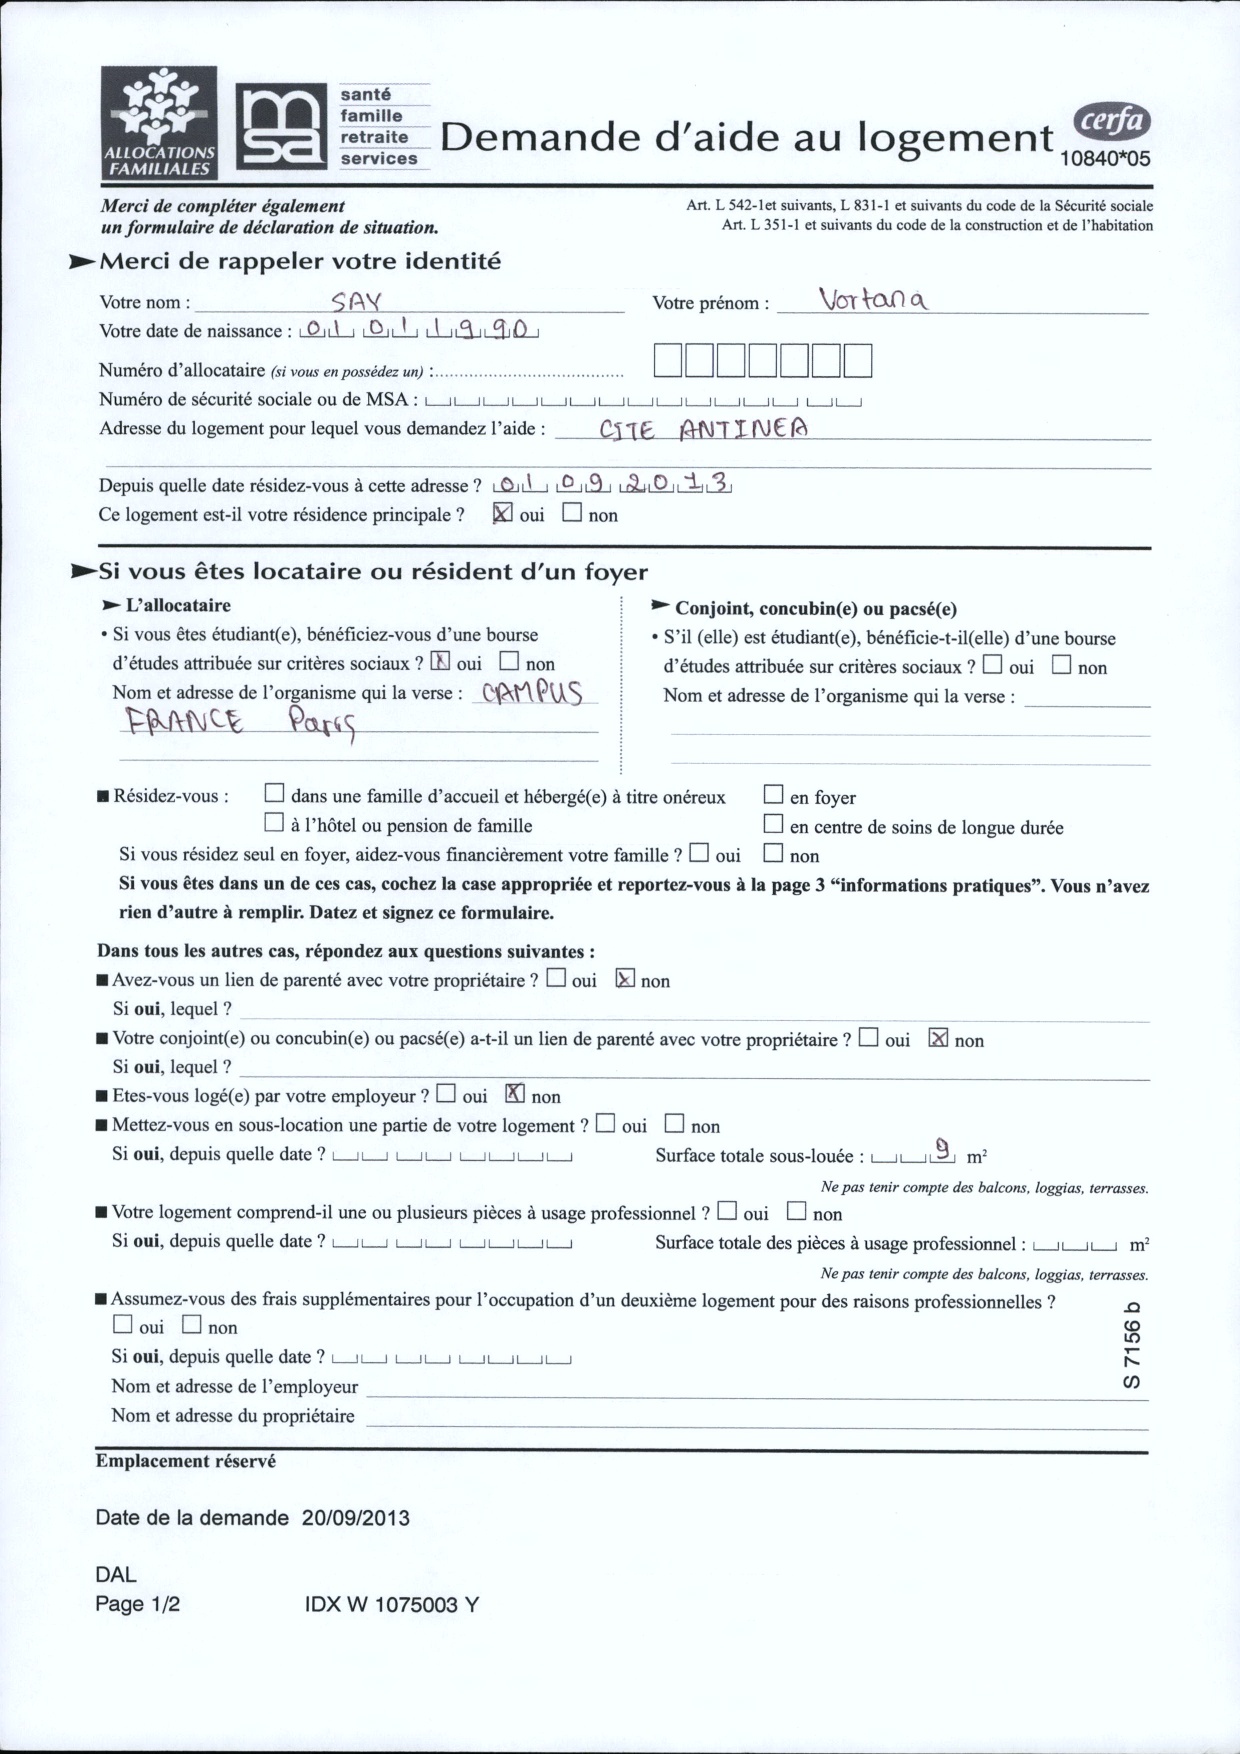 ALLOCATIONS
FAMILIALES
msa
santé
famille
retraite
services
Demande d'aide au logement
cerfa
10840*05
Merci de compléter également
un formulaire de déclaration de situation.
Art. L 542-1et suivants, L 831-1 et suivants du code de la Sécurité sociale
Art. L 351-1 et suivants du code de la construction et de l'habitation
Merci de rappeler votre identité
Votre nom : SAY Votre prénom : Vortana
Votre date de naissance : 01 01 1990
Numéro d'allocataire (si vous en possédez un) :
Numéro de sécurité sociale ou de MSA :
Adresse du logement pour lequel vous demandez l'aide : CITE ANTINEA
Depuis quelle date résidez-vous à cette adresse ? 01 09 2013
Ce logement est-il votre résidence principale ? X oui non
Si vous êtes locataire ou résident d'un foyer
L'allocataire
• Si vous êtes étudiant(e), bénéficiez-vous d'une bourse
d'études attribuée sur critères sociaux ? X oui non
Nom et adresse de l'organisme qui la verse : CAMPUS
FRANCE Paris
Conjoint, concubin(e) ou pacsé(e)
• S'il (elle) est étudiant(e), bénéficie-t-il(elle) d'une bourse
d'études attribuée sur critères sociaux ? oui non
Nom et adresse de l'organisme qui la verse :
Résidez-vous : dans une famille d'accueil et hébergé(e) à titre onéreux en foyer
à l'hôtel ou pension de famille en centre de soins de longue durée
Si vous résidez seul en foyer, aidez-vous financièrement votre famille ? oui non
Si vous êtes dans un de ces cas, cochez la case appropriée et reportez-vous à la page 3 “informations pratiques”. Vous n'avez
rien d'autre à remplir. Datez et signez ce formulaire.
Dans tous les autres cas, répondez aux questions suivantes :
Avez-vous un lien de parenté avec votre propriétaire ? oui X non
Si oui, lequel ?
Votre conjoint(e) ou concubin(e) ou pacsé(e) a-t-il un lien de parenté avec votre propriétaire ? oui X non
Si oui, lequel ?
Etes-vous logé(e) par votre employeur ? oui X non
Mettez-vous en sous-location une partie de votre logement ? oui non
Si oui, depuis quelle date ? Surface totale sous-louée : 9 m²
Ne pas tenir compte des balcons, loggias, terrasses.
Votre logement comprend-il une ou plusieurs pièces à usage professionnel ? oui non
Si oui, depuis quelle date ? Surface totale des pièces à usage professionnel : m²
Ne pas tenir compte des balcons, loggias, terrasses.
Assumez-vous des frais supplémentaires pour l'occupation d'un deuxième logement pour des raisons professionnelles ?
oui non
Si oui, depuis quelle date ?
Nom et adresse de l'employeur
Nom et adresse du propriétaire
S 7156 b
Emplacement réservé
Date de la demande 20/09/2013
DAL
Page 1/2 IDX W 1075003 Y